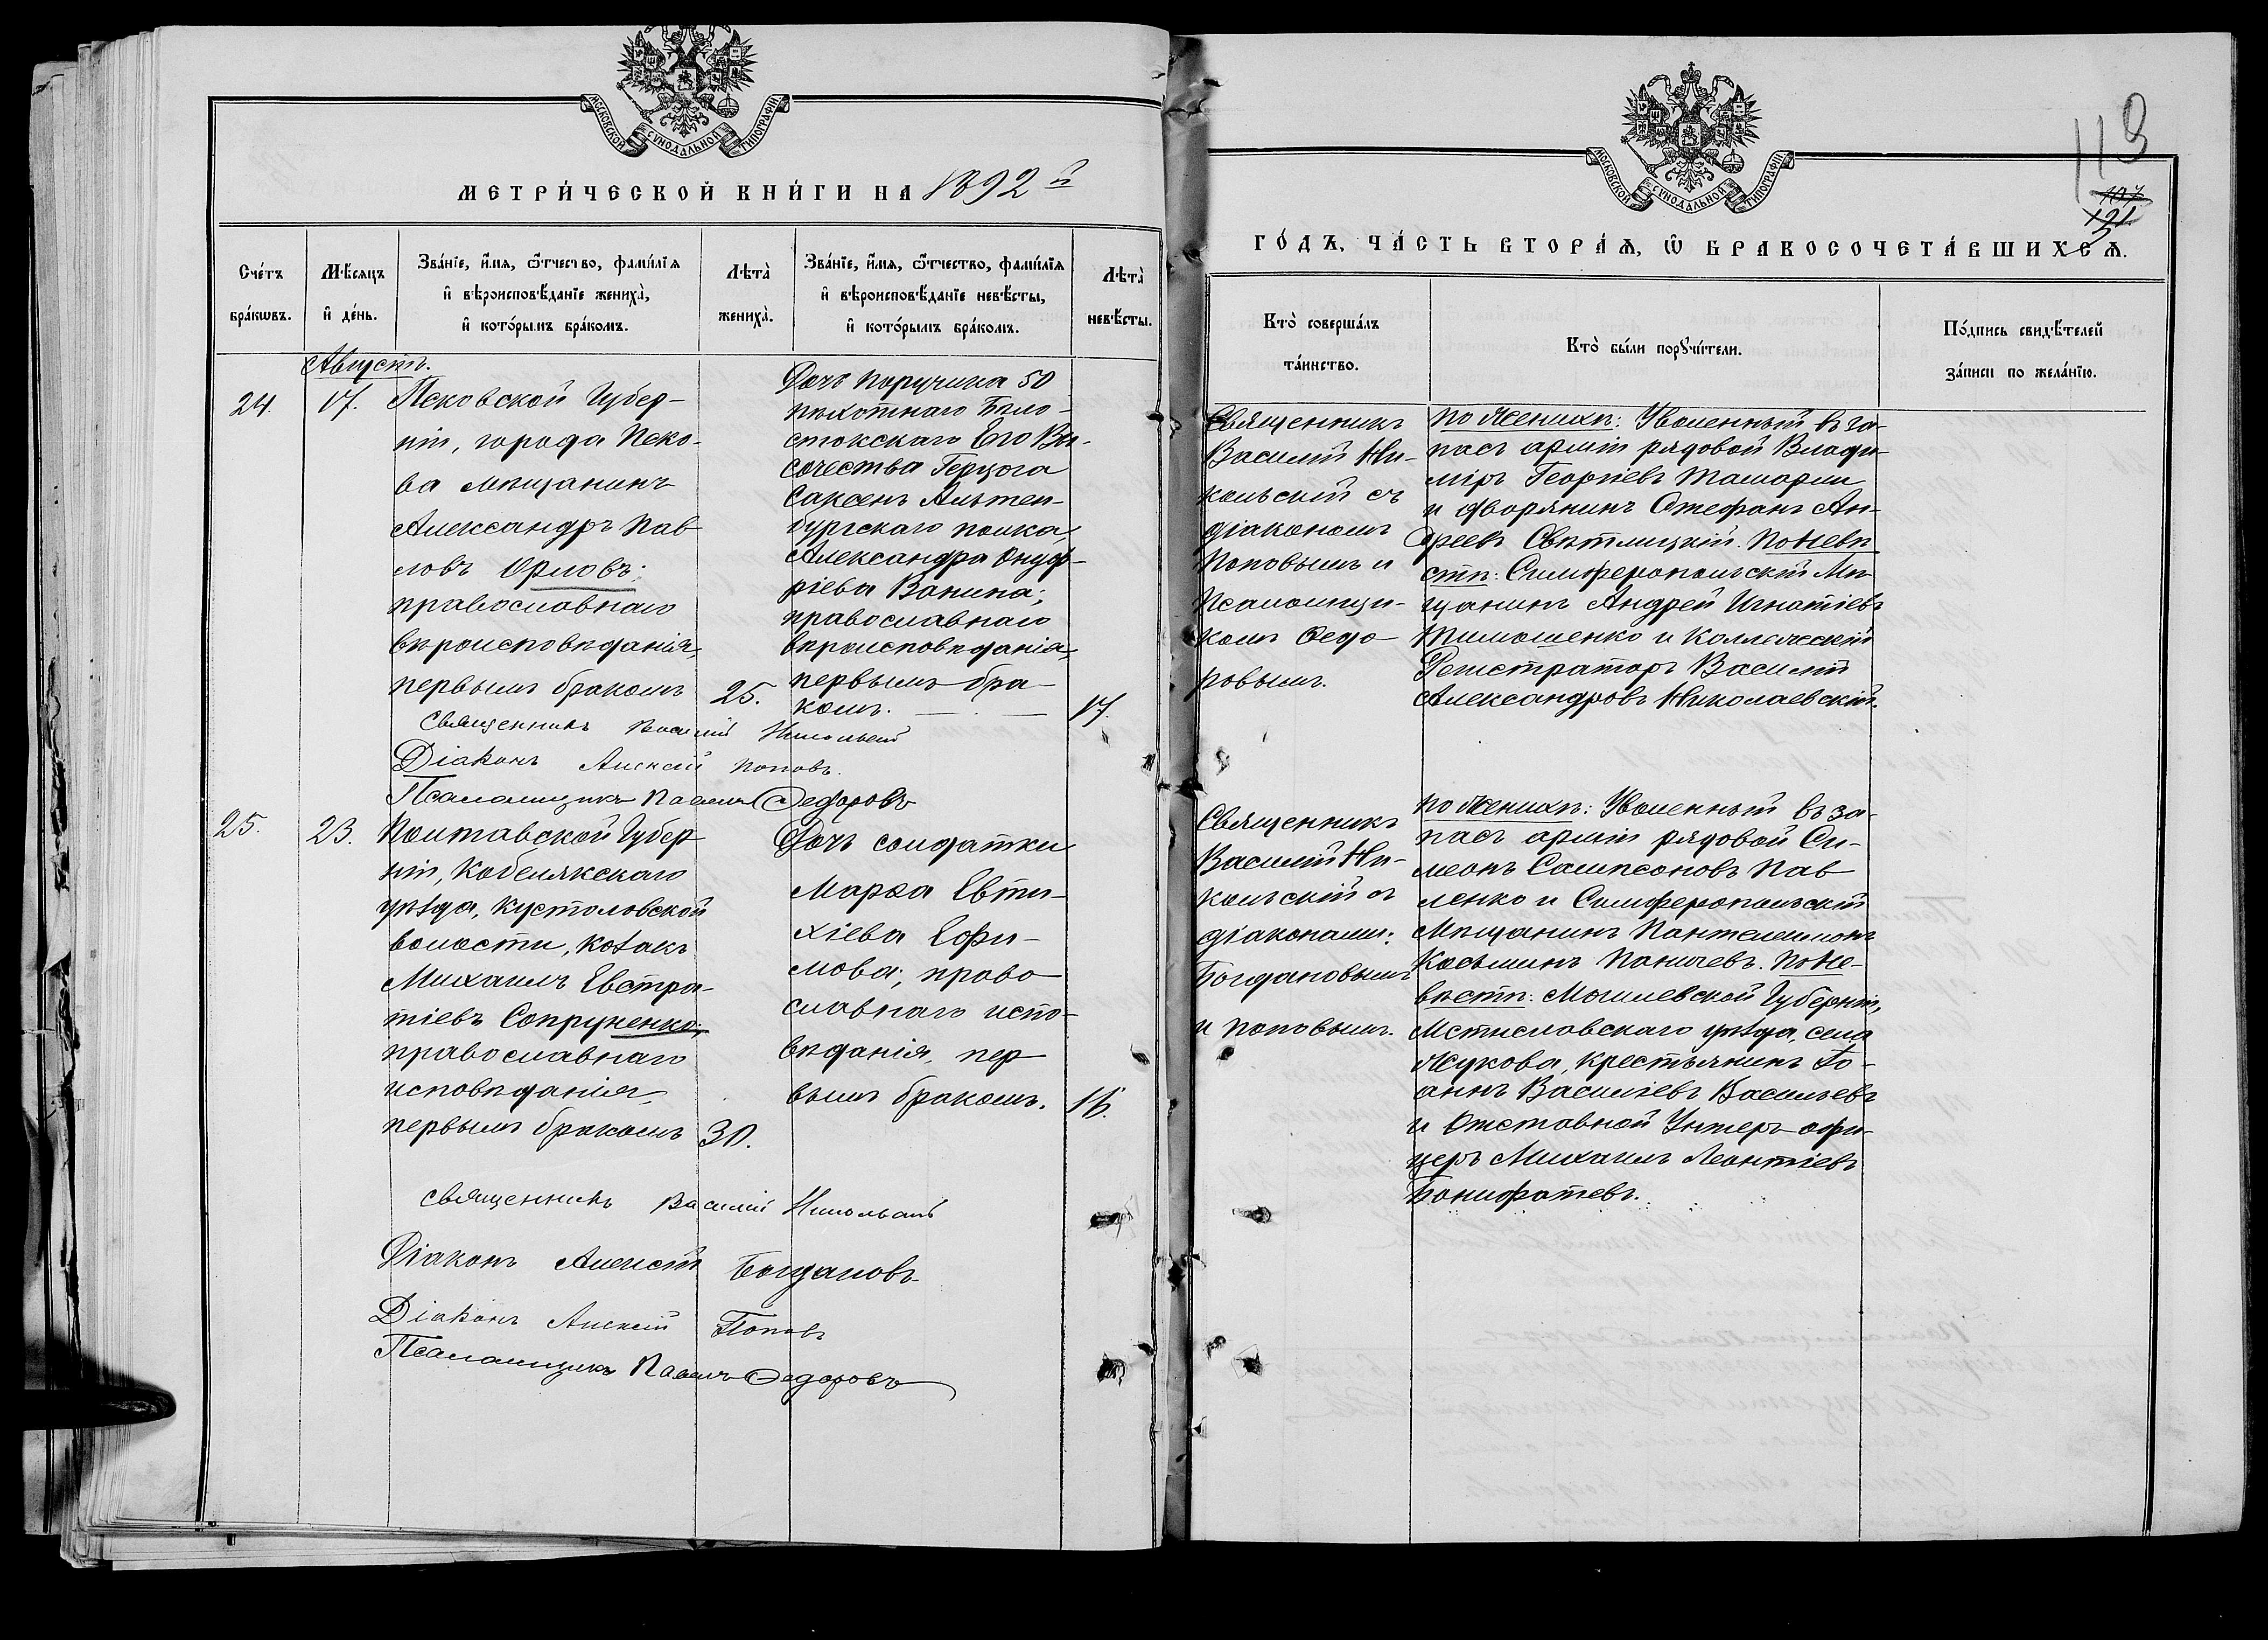 МОСКОВСКОЙ СѴНОДАЛЬНОЙ ТИПОГРАФІИ
МЕТРИ́ЧЕСКОЙ КНИ́ГИ НА 1892 й
Сче́тъ бра́кѡвъ.
Мѣ́сяцъ и҆ де́нь.
Зва́нїе, и҆́мя, ѻ҆́тчество, фами́лїя
и҆ вѣроисповѣ́данїе жениха̀,
и҆ кото́рымъ бра́комъ.
Лѣта̀ жениха̀.
Зва́нїе, и҆́мя, ѻ҆́тчество, фами́лїя
и҆ вѣроисповѣ́данїе невѣ́сты,
и҆ кото́рымъ бра́комъ.
Лѣта̀ невѣ́сты.
Августъ.
24.
17.
Псковской Губер-
ніи, города Пско-
ва мѣщанинъ
Александръ Пав
ловъ Орловъ;
православнаго
вѣроисповѣданія,
первымъ бракомъ
25.
Дочь поручика 50
пѣхотнаго Бѣло-
стокскаго Его Вы-
сочества Герцога
Саксенъ Альтен-
бургскаго полка,
Александра Онуф-
ріева Ванина;
православнаго
вѣроисповѣданія,
первымъ бра-
комъ.
17.
Священникъ Василій Никольскій
Діаконъ Алексій Поповъ.
Псаломщикъ Павелъ Федоровъ
25.
23.
Полтавской Губер
ніи, Кобелякскаго
уѣзда, Кустоловской
волости, козакъ
Михаилъ Евстра-
тіевъ Сопруненко;
православнаго
исповѣданія,
первымъ бракомъ
30.
Дочь солдатки
Марѳа Евти-
хіева Ефи-
мова; право
славнаго испо-
вѣданія, пер
вымъ бракомъ.
16.
Священникъ Василій Никольскій
Діаконъ Алексій Богдановъ
Діаконъ Алексій Поповъ
Псаломщикъ Павелъ Федоровъ
МОСКОВСКОЙ СѴНОДАЛЬНОЙ ТИПОГРАФІИ
113
107
121
ГО́ДЪ, ЧА́СТЬ ВТОРА́Я, Ѡ҆ БРАКОСОЧЕТА́ВШИХСЯ.
Кто̀ соверша́лъ
та́инство.
Кто̀ бы́ли порꙋчи́тели.
По́дпись свидѣ́телей
за́писи по жела́нїю.
Священникъ
Василій Ни-
кольскій съ
діакономъ
Поповымъ и
Псаломщи-
комъ Федо-
ровымъ.
По Женихѣ: Уволенный въ за-
пасъ арміи рядовой Влади-
міръ Георгіевъ Ташарли
и дворянинъ Стефанъ Ан-
дреевъ Свѣтлицкій. По Невѣ
стѣ: Симферопольскій Мѣ-
щанинъ Андрей Игнатіевъ
Тимошенко и Коллежскій
Регистраторъ Василій
Александровъ Николаевскій.
Священникъ
Василій Ни-
кольскій съ
діаконами:
Богдановымъ
и Поповымъ.
По Женихѣ: Уволенный въ за-
пасъ арміи рядовой Си-
меонъ Сампсоновъ Пав
ленко и Симферопольскій
Мѣщанинъ Пантелеимонъ
Косьминъ Паничевъ. По Не-
вѣстѣ: Могилевской Губерніи,
Мстиславскаго уѣзда, села
Жукова, крестьянинъ Іо-
аннъ Василіевъ Васильевъ
и Отставной Унтеръ-офи-
церъ Михаилъ Леонтіевъ
Бонифатевъ.